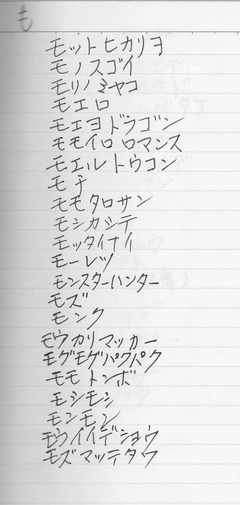 も
モットヒカリヨ
モノスゴイ
モリノミヤコ
モエロ
モエヨドラゴン
モモイロロマンス
モエルトウコン
モチ
モモタロサン
モシカシテ
モッタイナイ
モーレツ
モンスターハンター
モズ
モンク
モウカリマッカー
モグモグパクパク
モモトンボ
モシモシ
モンモン
モウイイデショウ
モズマッテタワ